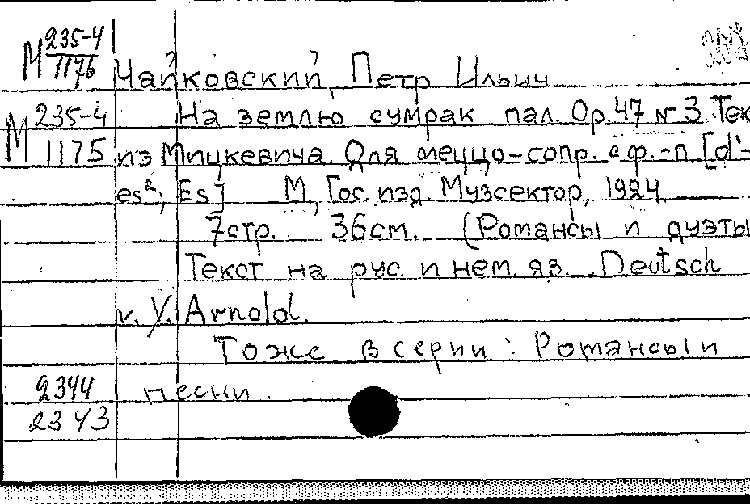 М 235-4
1176
Чайковский, Петр Ильич
М 235-4
1175
На землю сумрак пал. Op. 47 № 3. Тек
из Мицкевича. Для меццо-сопр. с ф.-п. [d'-
es²; Es] М, Гос. изд. Музсектор, 1924
7 стр. 36 см. (Романсы и дуэты
Текст на рус. и нем. яз. Deutsch
v. Y. Arnold.
Тоже в серии: Романсы и
песни.
2344
2343